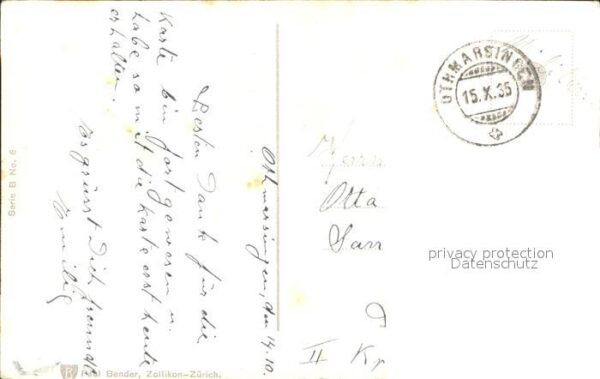 Othmarsingen, den 14.10.
Besten Dank für die
Karte bin fort gewesen u.
habe somit die Karte erst heute
erhalten.
Es grüsst Dich freundl.
OTHMARSINGEN
15.X.35
Herrn
Otto
II
Serie B No. 6
Paul Bender, Zollikon-Zürich.
privacy protection
Datenschutz